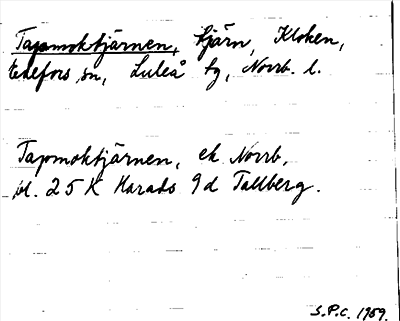 Tapmoktjärnen, tjärn, Kloken,
Edefors sn, Luleå tg, Norrb. l.
Tapmoktjärnen, ek. Norrb,
bl. 25 K Harads 9d Tallberg.
S.P.C. 1959.